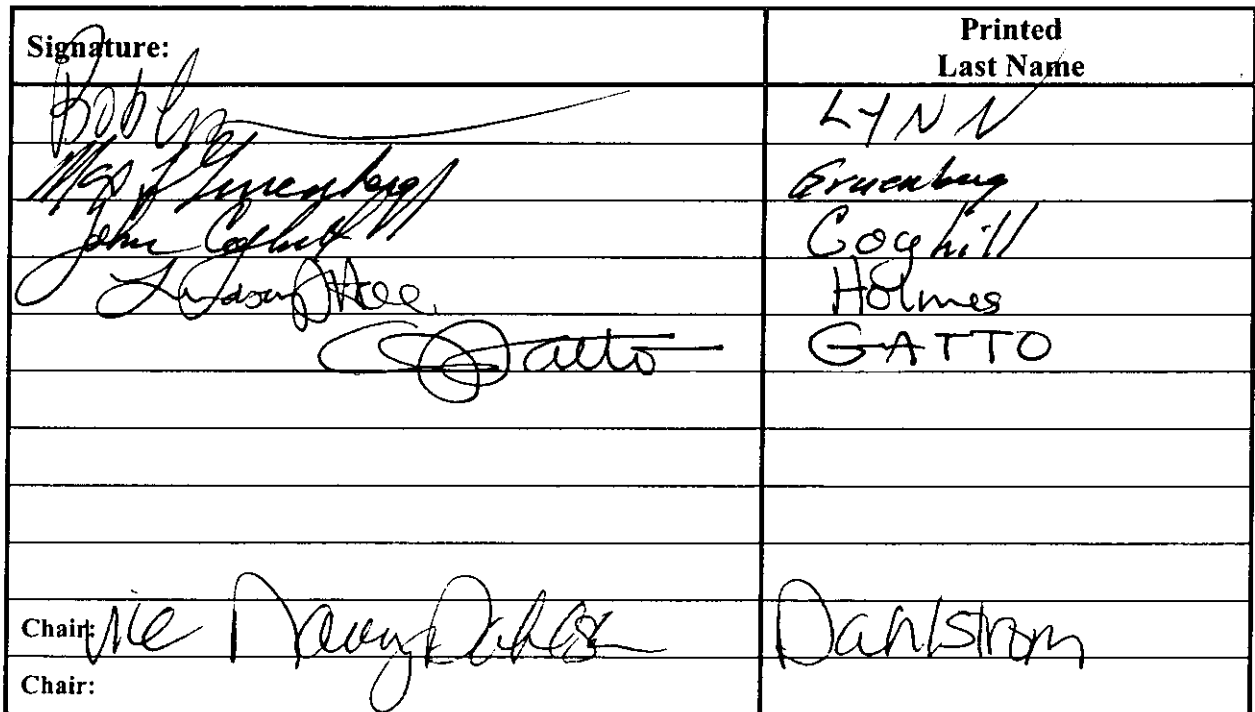 Signature: Printed
Last Name
Bob Lynn LYNN
Max Gruenberg Gruenberg
John Coghill Coghill
Lindsey Holmes
GATTO GATTO
Chair: Vice Nancy Dahlstrom Dahlstrom
Chair: